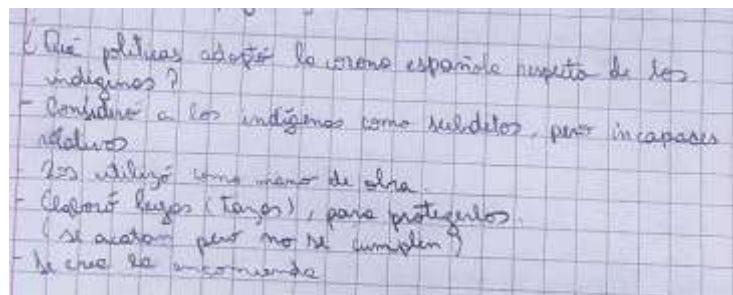 ¿Qué políticas adoptó la corona española respecto de los
indígenas?
- Consideró a los indígenas como subditos, pero incapaces
relativos
- Los utilizó como mano de obra.
- Elaboró leyes (Tasas), para protegerlos.
(se acatan pero no se cumplen)
- Se crea la encomienda